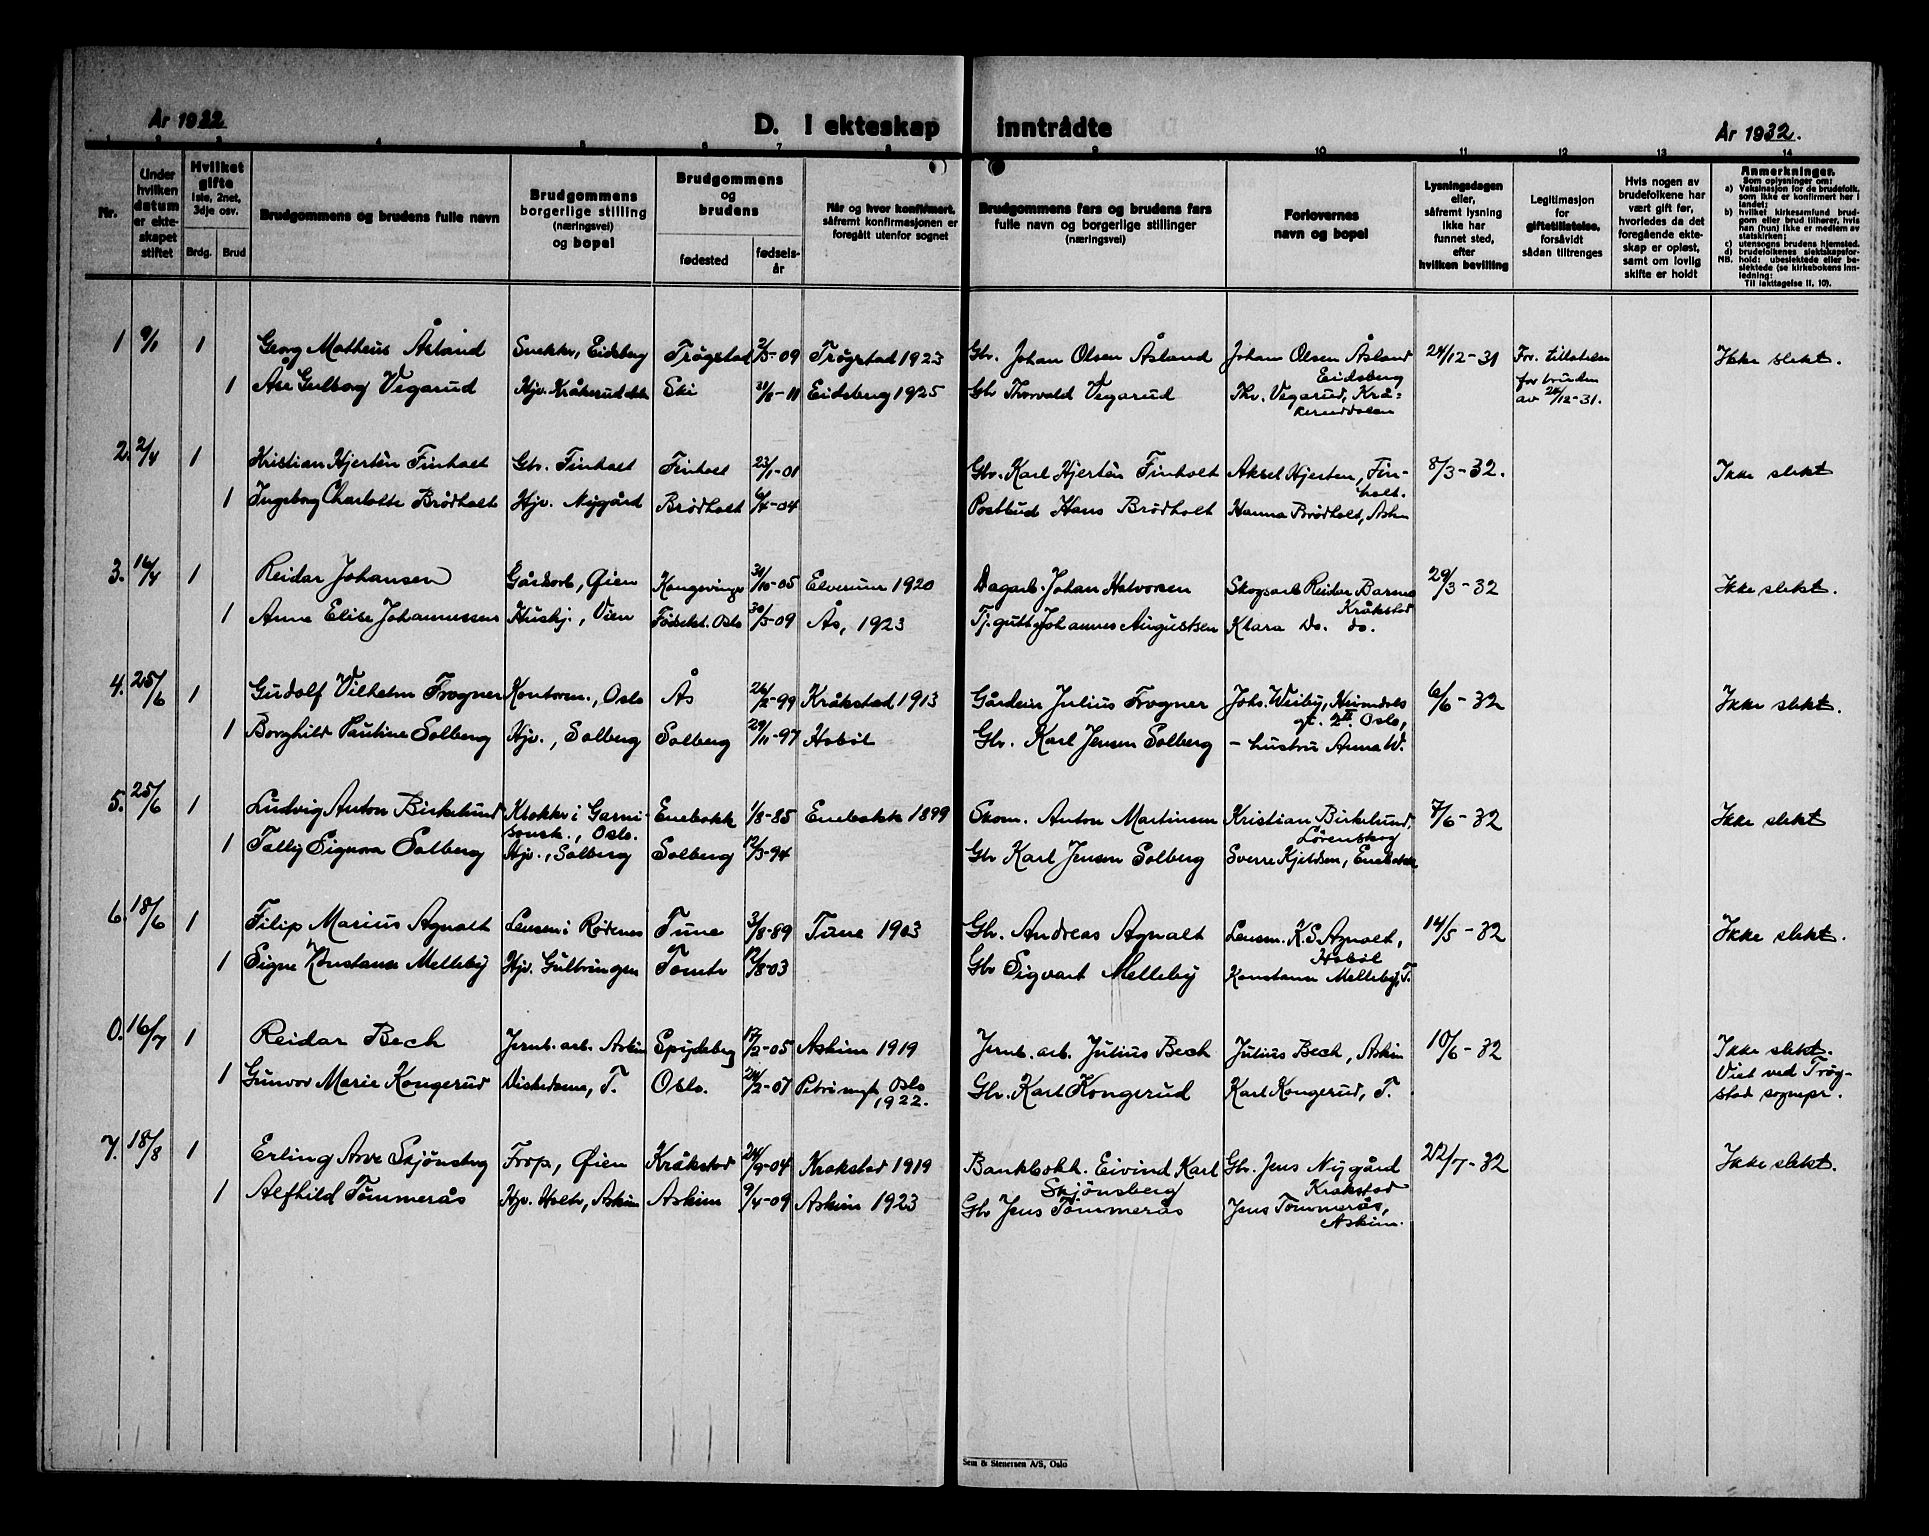 År 1932
D. I ekteskap inntrådte
År 1932.
1 2 3 4 5 6 7 8 9 10 11 12 13 14
Nr.
Under hvilken datum er ekteskapet stiftet
Hvilket gifte
1ste, 2net, 3dje osv.
Brdg. Brud
Brudgommens og brudens fulle navn
Brudgommens borgerlige stilling (næringsvei) og bopel
Brudgommens og brudens
fødested
fødselsår
Når og hvor konfirmert, såfremt konfirmasjonen er foregått utenfor sognet
Brudgommens fars og brudens fars fulle navn og borgerlige stillinger (næringsvei)
Forlovernes navn og bopel
Lysningsdagen eller, såfremt lysning ikke har funnet sted, efter hvilken bevilling
Legitimasjon for giftetillatelse, forsåvidt sådan tiltrenges
Hvis nogen av brudefolkene har vært gift før, hvorledes da det foregående ekteskap er opløst, samt om lovlig skifte er holdt
Anmerkninger.
Som oplysninger om:
a) Vaksinasjon for de brudefolk, som ikke er konfirmert her i landet;
b) hvilket kirkesamfund brudgom eller brud tilhører, hvis han (hun) ikke er medlem av statskirken;
c) utensogns brudens hjemsted.
d) brudefolkenes slektskapsforhold: ubeslektede eller beslektede (se kirkebokens innledning:
NB.
Til iakttagelse II, 10).
1 9/1 1 Georg Matheus Åsland Snekker, Eidsberg Trøgstad 2/5-09 Trøgstad 1923 Gbr. Johan Olsen Åsland Johan Olsen Åsland Eidsberg 24/12-31 For. tillatelse Ikke slekt.
1 Åse Gulborg Vegarud Hjv. Kråkerud Ski 31/8-11 Eidsberg 1925 Gbr Thorvald Vegarud Thv. Vegarud, Kråkeruddalen for bruden av 24/12-31.
2. 2/4 1 Kristian Hjerten Finholt Gbr. Finholt Finholt 23/1-01 Gbr. Karl Hjerten Finholt Aksel Hjerten, Finholt. 8/3-32. Ikke slekt
1 Ingeborg Charlotte Brødholt Hjv. Nygård Brødholt 6/4-04 Postbud Hans Brødholt Hanna Brødholt, Askim
3. 16/4 1 Reidar Johansen Gårdsarb, Øien Kongsvinger 31/10-05 Elverum 1920 Dagarb. Johan Halvorsen Skogsarb Reidar Kråkstad 29/3-32 Ikke slekt.
1 Anna Elise Johannessen Hushj., Oien Fødselst. Oslo 30/5-09 Ås, 1923 Tj.gutt Johannes Augustsen Klara Do. do.
4. 25/6 1 Gudolf Vilhelm Frogner Kontorm., Oslo Ås 26/2-99 Kråkstad 1913 Gårdeier Julius Frogner Johs. Weiby, Heimdals gt. 2II Oslo, 6/6-32 Ikke slekt.
1 Borghild Pauline Solberg Hjv., Solberg Solberg 29/11-97 Hobøl Gbr. Karl Jensen Solberg - hustru Anna W.
5. 25/6 1 Ludvig Anton Birkelund Klokker i Garnisonsk., Oslo. Enebakk 1/8-85 Enebakk 1899 Skom. Anton Martinsen Kristian Birkelund, Lørenskog 7/6-32 Ikke slekt
1 Signora Solberg Hjv., Solberg Solberg 12/3-94 Gbr Karl Jensen Solberg Sverre Kjeldsen, Enebakk
6. 18/6 1 Filip Marius Agnalt Lensm i Rødenes Tune 3/8-89 Tune 1903 Gbr. Andreas Agnalt Lensm. K.S. Agnalt, Hobøl 14/5-32 Ikke slekt.
1 Signe Konstanse Melleby Hjv. Gulbringen Tomter 12/8-03 Gbr Sigvart Melleby Konstanse Melleby, T.
0. 16/7 1 Reidar Bech Jernb. arb. Askim Spydeberg 17/2-05 Askim 1919 Jernb. arb. Julius Bech Julius Bech, Askim 10/6-32 Ikke slekt.
1 Gunvor Marie Kongerud T. Oslo. 24/2-07 Oslo 1922. Gbr. Karl Kongerud Karl Kongerud, T. Viet ved Trøgstad sognepr.
7. 18/8 1 Erling Arve Skjønsberg Frop, Øien Kråkstad 24/9-04 Kråkstad 1919 Bankbokh. Eivind Karl Skjønsberg Gbr. Jens Nygård Kråkstad 22/7-32 Ikke slekt.
1 Alfhild Tømmerås Hjv. Holtr, Askim Askim 9/4-09 Askim 1923 Gbr Jens Tømmerås Jens Tømmerås, Askim.
Sem & Stenersen A/S, Oslo